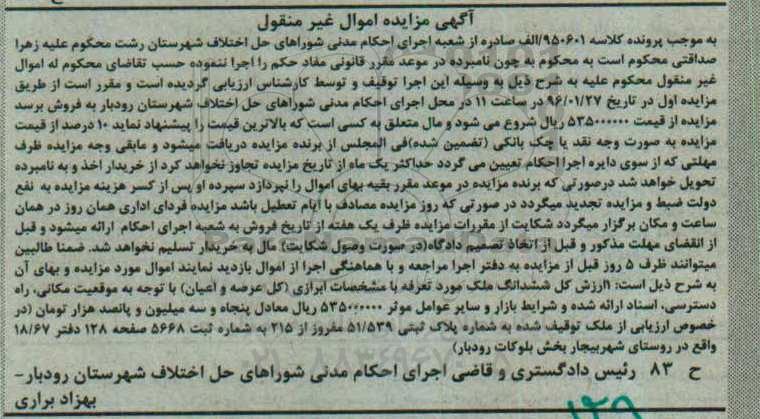 آگهی مزایده اموال غیر منقول
به موجب پرونده کلاسه ۹۵۰۶۰۱/الف صادره از شعبه اجرای احکام مدنی شوراهای حل اختلاف شهرستان رشت محکوم علیه زهرا
صداقتی محکوم است به محکوم به چون نامبرده در موعد مقرر قانونی مفاد حکم را اجرا ننموده حسب تقاضای محکوم له اموال
غیر منقول محکوم علیه به شرح ذیل به وسیله این اجرا توقیف و توسط کارشناس ارزیابی گردیده است و مقرر است از طریق
مزایده اول در تاریخ ۹۶/۰۱/۲۷ در ساعت ۱۱ در محل اجرای احکام مدنی شوراهای حل اختلاف شهرستان رودبار به فروش برسد
مزایده از قیمت ۵۳۵۰۰۰۰۰۰ ریال شروع می شود و مال متعلق به کسی است که بالاترین قیمت را پیشنهاد نماید ۱۰ درصد از قیمت
مزایده به صورت وجه نقد یا چک بانکی (تضمین شده)فی المجلس از برنده مزایده دریافت میشود و مابقی وجه مزایده ظرف
مهلتی که از سوی دایره اجرا احکام تعیین می گردد حداکثر یک ماه از تاریخ مزایده تجاوز نخواهد کرد از خریدار اخذ و به نامبرده
تحویل خواهد شد درصورتی که برنده مزایده در موعد مقرر بقیه بهای اموال را نپردازد سپرده او پس از کسر هزینه مزایده به نفع
دولت ضبط و مزایده تجدید میگردد در صورتی که روز مزایده مصادف با ایام تعطیل باشد مزایده فردای اداری همان روز در همان
ساعت و مکان برگزار میگردد شکایت از مقررات مزایده ظرف یک هفته از تاریخ فروش به شعبه اجرای احکام ارائه میشود و قبل
از انقضای مهلت مذکور و قبل از اتخاذ تصمیم دادگاه(در صورت وصول شکایت) مال به خریدار تسلیم نخواهد شد. ضمنا طالبین
میتوانند ظرف ۵ روز قبل از مزایده به دفتر اجرا مراجعه و با هماهنگی اجرا از اموال بازدید نمایند اموال مورد مزایده و بهای آن
به شرح ذیل است: ۱ارزش کل ششدانگ ملک مورد تعرفه با مشخصات ابرازی (کل عرصه و اعیان) با توجه به موقعیت مکانی، راه
دسترسی، اسناد ارائه شده و شرایط بازار و سایر عوامل موثر ۵۳۵۰۰۰۰۰۰ ریال معادل پنجاه و سه میلیون و پانصد هزار تومان (در
خصوص ارزیابی از ملک توقیف شده به شماره پلاک ثبتی ۵۱/۵۳۹ مفروز از ۲۱۵ به شماره ثبت ۵۶۶۸ صفحه ۱۲۸ دفتر ۱۸/۶۷
واقع در روستای شهربیجار بخش بلوکات رودبار)
ح ۸۳ رئیس دادگستری و قاضی اجرای احکام مدنی شوراهای حل اختلاف شهرستان رودبار–
بهزاد براری